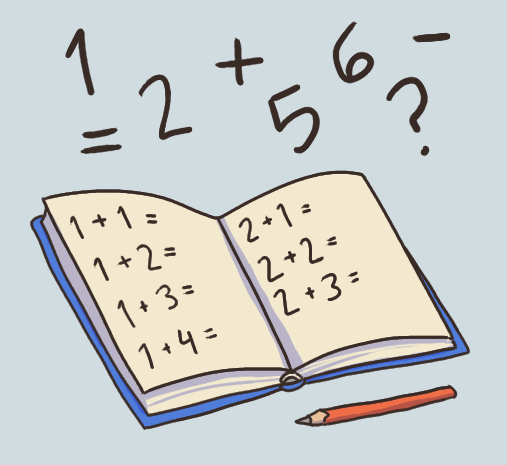 1 + 6 -
= 2 5 ?
1 + 1 =
1 + 2 =
1 + 3 =
1 + 4 =
2 + 1 =
2 + 2 =
2 + 3 =